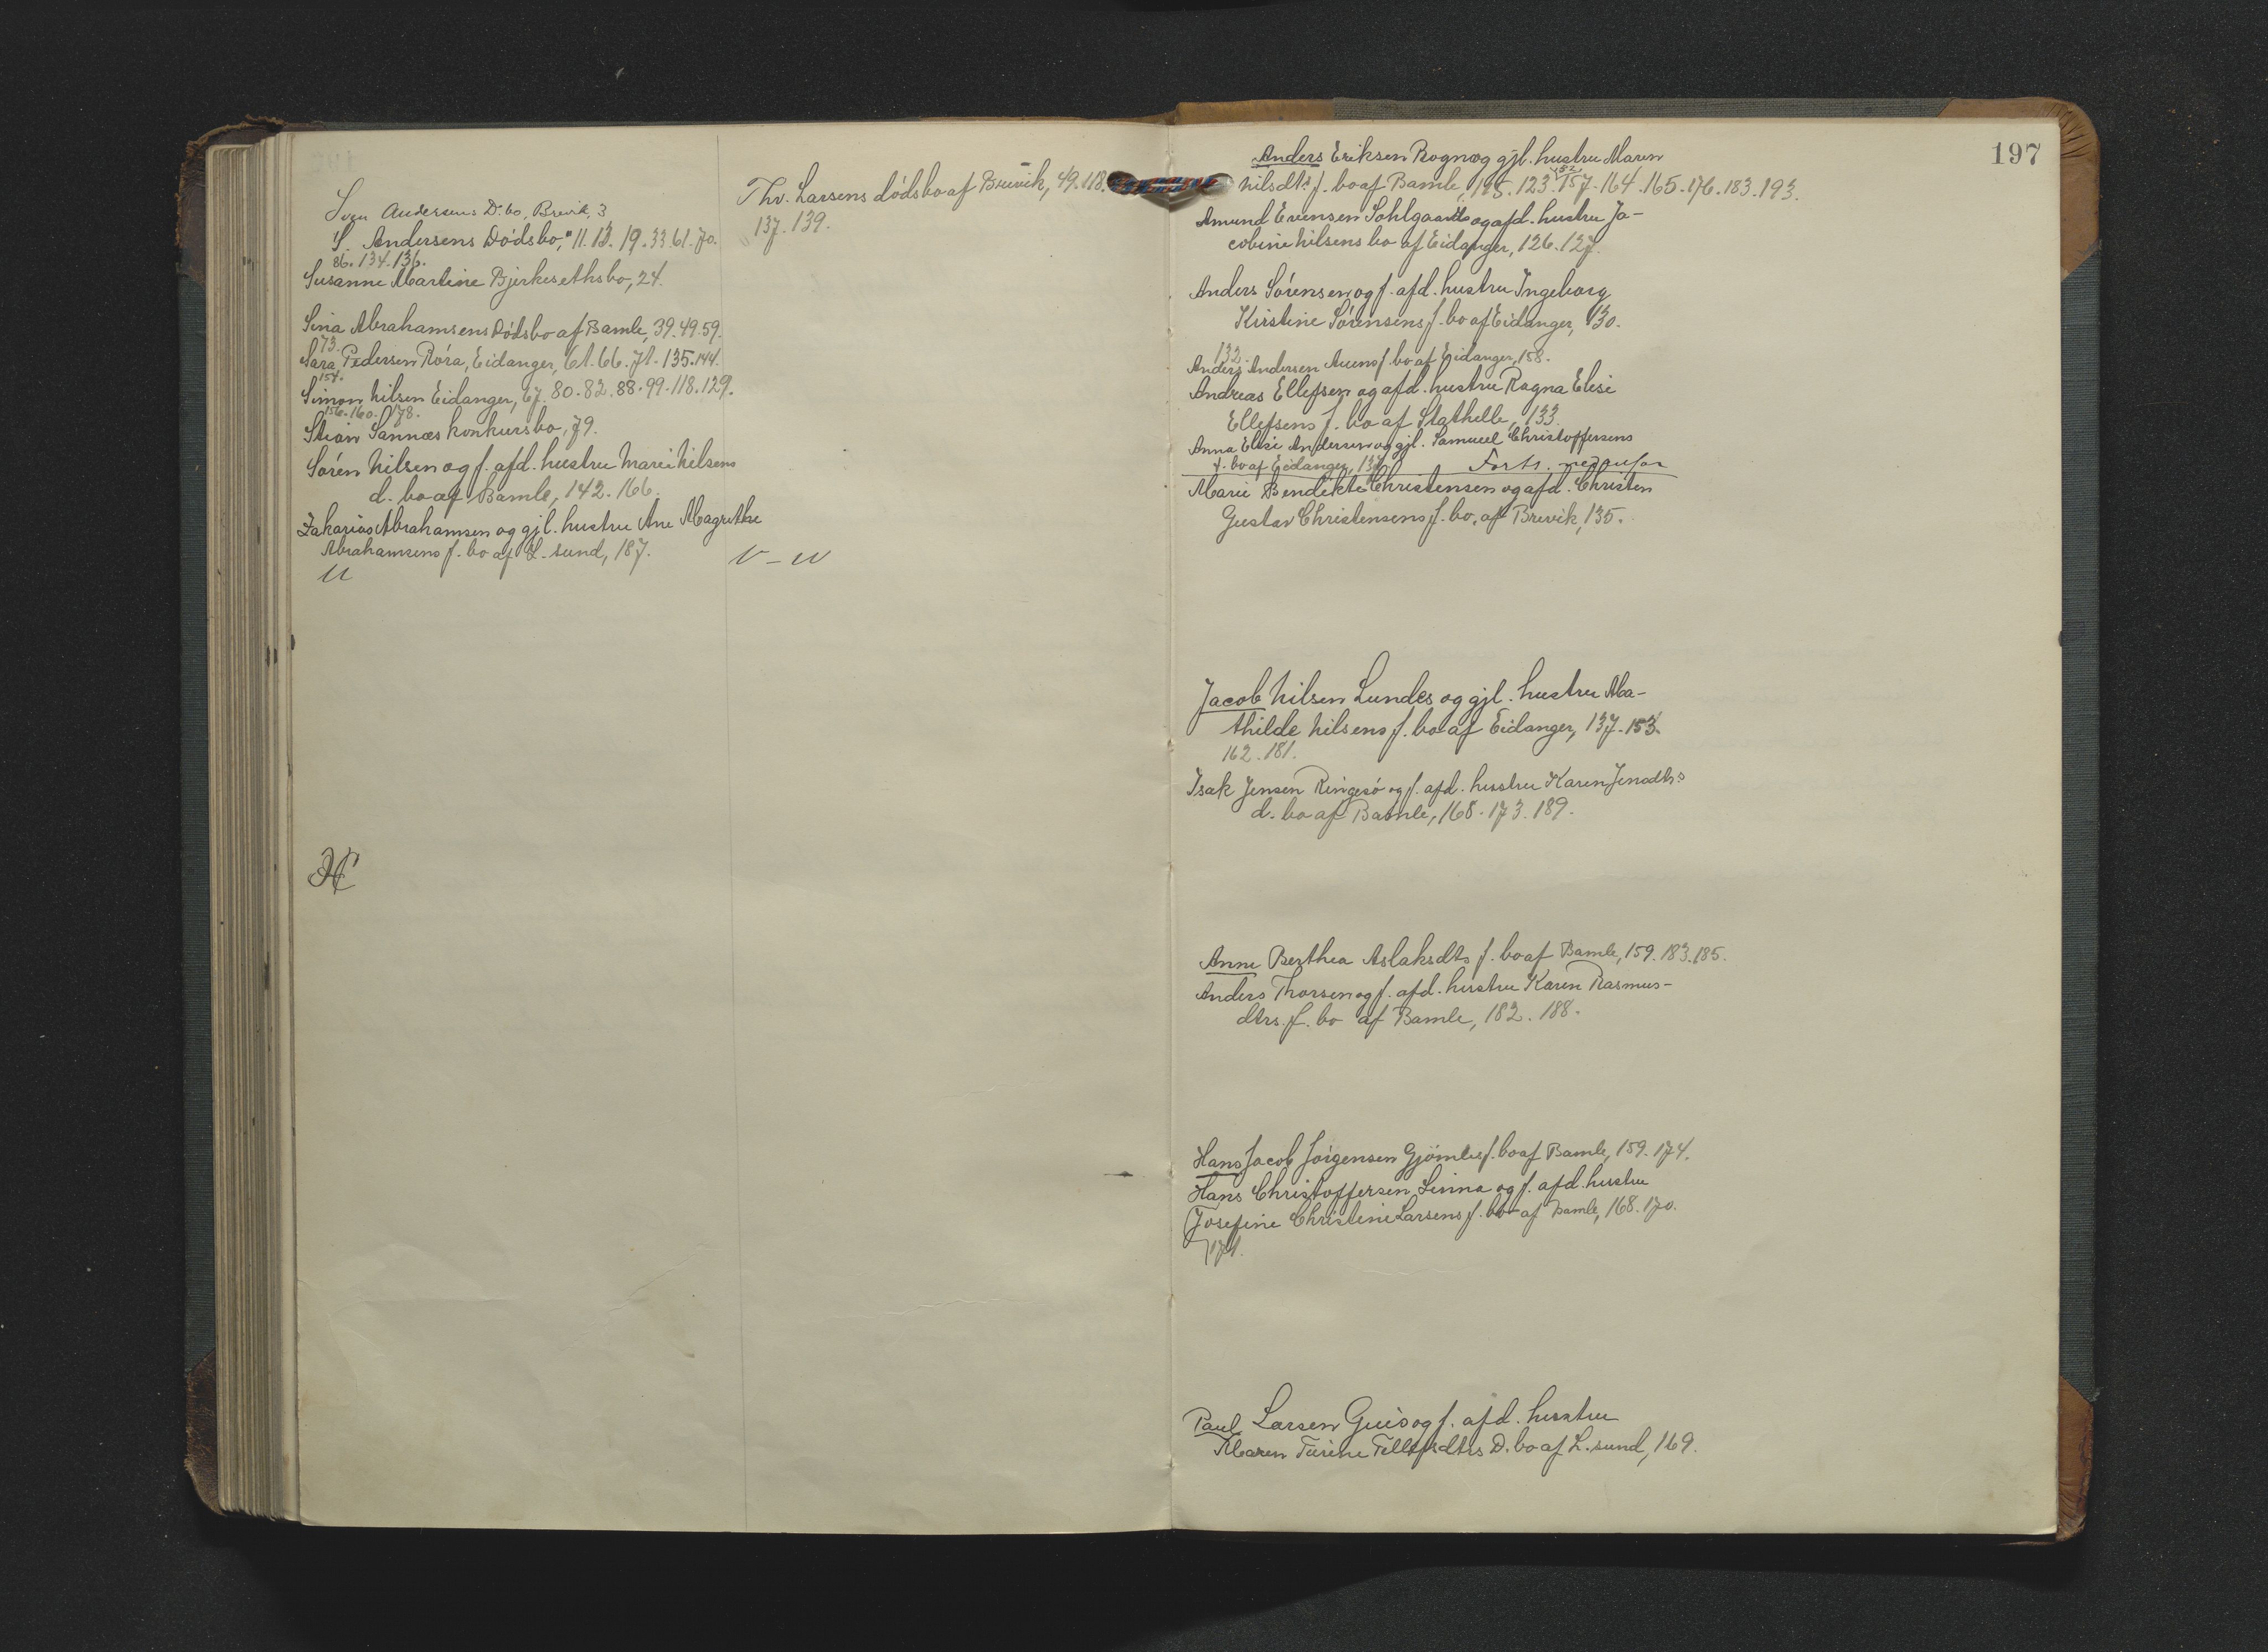 Sven Andersens D. bo, Brevik, 3
S. Andersens Dódsbo, " 11. 13. 19. 33. 61. 70.
86. 134. 136.
Susanne Martine Bjerkesethsbo, 24.
Sina Abrahamsens Dódsbo af Bamle, 39. 49. 59.
73.
Sara Pedersen Róra, Eidanger, 61. 66. 71. 135. 144.
154.
Simon Nilsen Eidanger, 67. 80. 82. 88. 99. 118. 129.
156. 160. 178.
Stian Sannæs konkursbo, 79.
Sóren Nilsen og f. afd. hustru Marie Nilsens
d. bo af Bamle, 142. 166.
Zakarias Abrahamsen og gjl. hustru Ane Magrethe
Abrahamsens f. bo af L-sund, 187.
U
H
Thv. Larsens dódsbo af Brevik, 49. 118.
137. 139.
V - W
197
Anders Eriksen Rogn og gjl. hustru Maren
Nilsdts f. bo af Bamle, 115. 123. 152 157. 164. 165. 176. 183. 193.
Amund Evensen Sohlgaard og afd. hustru Ja-
cobine Nilsens bo af Eidanger, 126. 127.
Anders Sórensen og f. afd. hustru Ingeborg
Kirstine Sórensens f. bo af Eidanger, 130.
132.
Anders Andersen f. bo af Eidanger, 158.
Andreas Ellefsen og afd. hustru Ragna Elise
Ellefsens f. bo af Stathelle, 133.
Anna Elise Andersen og gjl. Samuel Christoffersens
f. bo af Eidanger, 137. Forts. nedenfor
Marie Bendikte Christensen og afd. Christen
Gustav Christensens f. bo. af Brevik, 135.
Jacob Nilsen Lundes og gjl. hustru Ma-
thilde Nilsens f. bo af Eidanger, 137. 153.
162. 181.
Isak Jensen Ringsó og f. afd. hustru Karen Jensdtrs
d. bo af Bamle, 168. 173. 189.
Anne Berthea Aslaksdts f. bo af Bamle, 159. 183. 185.
Anders Thorsen og f. afd. hustru Karen Rasmus-
dtrs. f. bo af Bamle, 182. 188.
Hans Jacob Jórgensen Gjómles f. bo af Bamle, 159. 174.
Hans Christoffersen Sinna og f. afd. hustru
Josefine Christine Larsens f. bo af Bamle, 168. 170.
171.
Paul Larsen og f. afd. hustru
Maren Turine Tellefsdtrs D. bo af L. sund, 169.